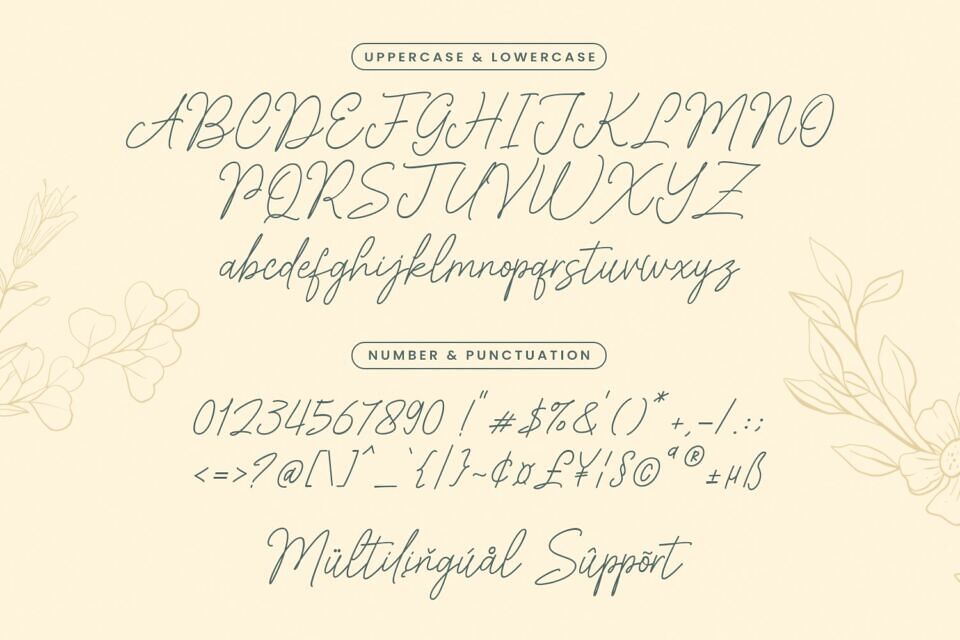 UPPERCASE & LOWERCASE
ABCDEFGHIJKLMNO
PQRSTUVWXYZ
abcdefghijklmnopqrstuvwxyz
NUMBER & PUNCTUATION
01234567890 !"#$%&'()*+,-/.:;
<=>?@[\]^_`{|}~¢¤£¥¦§©ª®±µß
Mültilirňgúål Sûppõrt